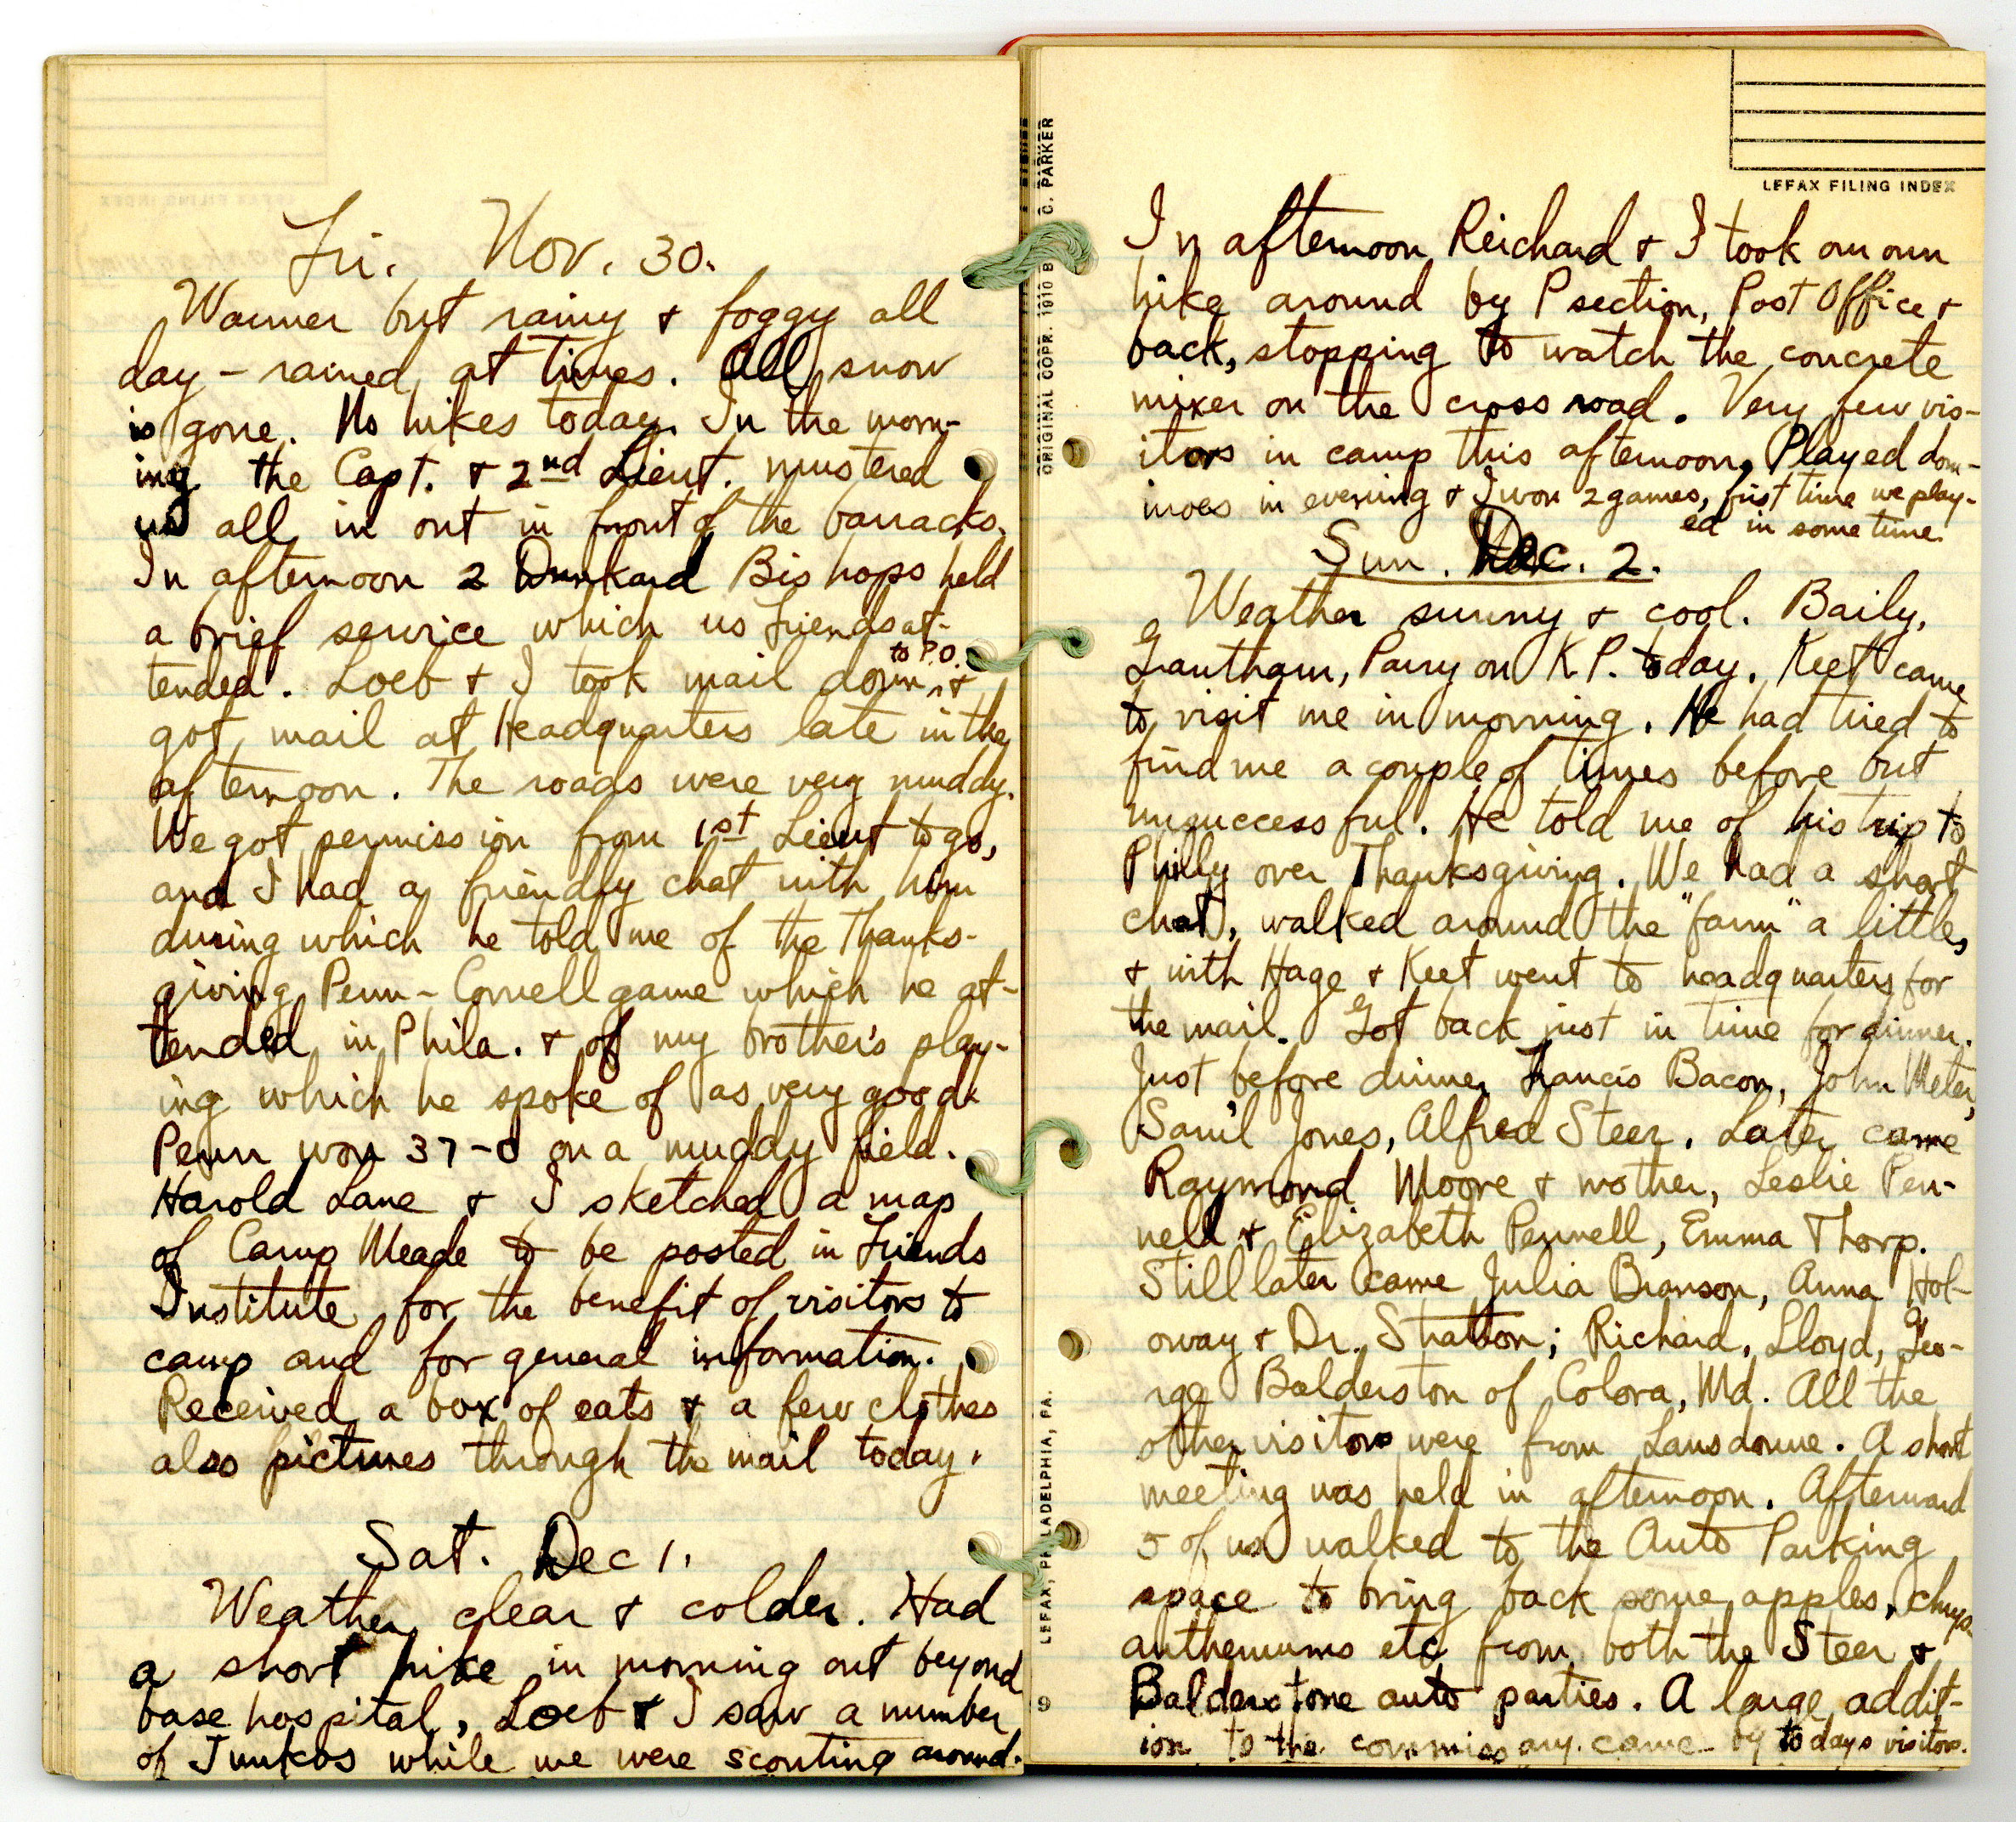 Fri. Nov. 30.
Warmer but rainy & foggy all
day - rained at times. All snow
is gone. No hikes today. In the morn-
ing the Capt. & 2nd Lieut. mustered
us all in out in front of the barracks.
In afternoon 2 Dunkard Bishops held
a brief service which us Friends at-
tended. Loeb & I took mail down to P.O. &
got mail at Headquarters late in the
afternoon. The roads were very muddy.
We got permission from 1st Lieut to go,
and I had a friendly chat with him
during which he told me of the Thanks-
giving Penn-Cornell game which he at-
tended in Phila. & of my brother's play-
ing which he spoke of as very good.
Penn won 37-0 on a muddy field.
Harold Lane & I sketched a map
of Camp Meade to be posted in Friends
Institute for the benefit of visitors to
camp and for general information.
Received a box of eats & a few clothes
also pictures through the mail today.
Sat. Dec 1.
Weather clear & colder. Had
a short hike in morning out beyond
base hospital, Loeb & I saw a number
of Junkos while we were scouting around.
ORIGINAL COPR. 1910 B C. PARKER
LEFAX, PHILADELPHIA, PA.
9
LEFAX FILING INDEX
In afternoon Reichard & I took our own
hike around by P section, Post Office &
back, stopping to watch the concrete
mixer on the cross road. Very few vis-
itors in camp this afternoon. Played dom-
inoes in evening & I won 2 games, first time we play-
ed in some time.
Sun. Dec. 2.
Weather sunny & cool. Baily,
Grantham, Parry on K.P. today. Keet came
to visit me in morning. He had tried to
find me a couple of times before but
unsuccessful. He told me of his trip to
Philly over Thanksgiving. We had a short
chat, walked around the "farm" a little,
& with Hage & Keet went to headquarters for
the mail. Got back just in time for dinner.
Just before dinner Francis Bacon, John
Sam'l Jones, Alfred Steer. Later came
Raymond Moore & mother, Leslie Pen-
nell & Elizabeth Pennell, Emma Thorp.
Still later came Julia Branson, Anna Hol-
oway & Dr. Stratton; Richard, Lloyd, & Geo-
rge Balderston of Colora, Md. All the
other visitors were from Lansdowne. A short
meeting was held in afternoon. Afterward
5 of us walked to the Auto Parking
space to bring back some apples, chrys-
anthemums etc from both the Steer &
Balderstone auto parties. A large addit-
ion to the commissary came by todays visitors.